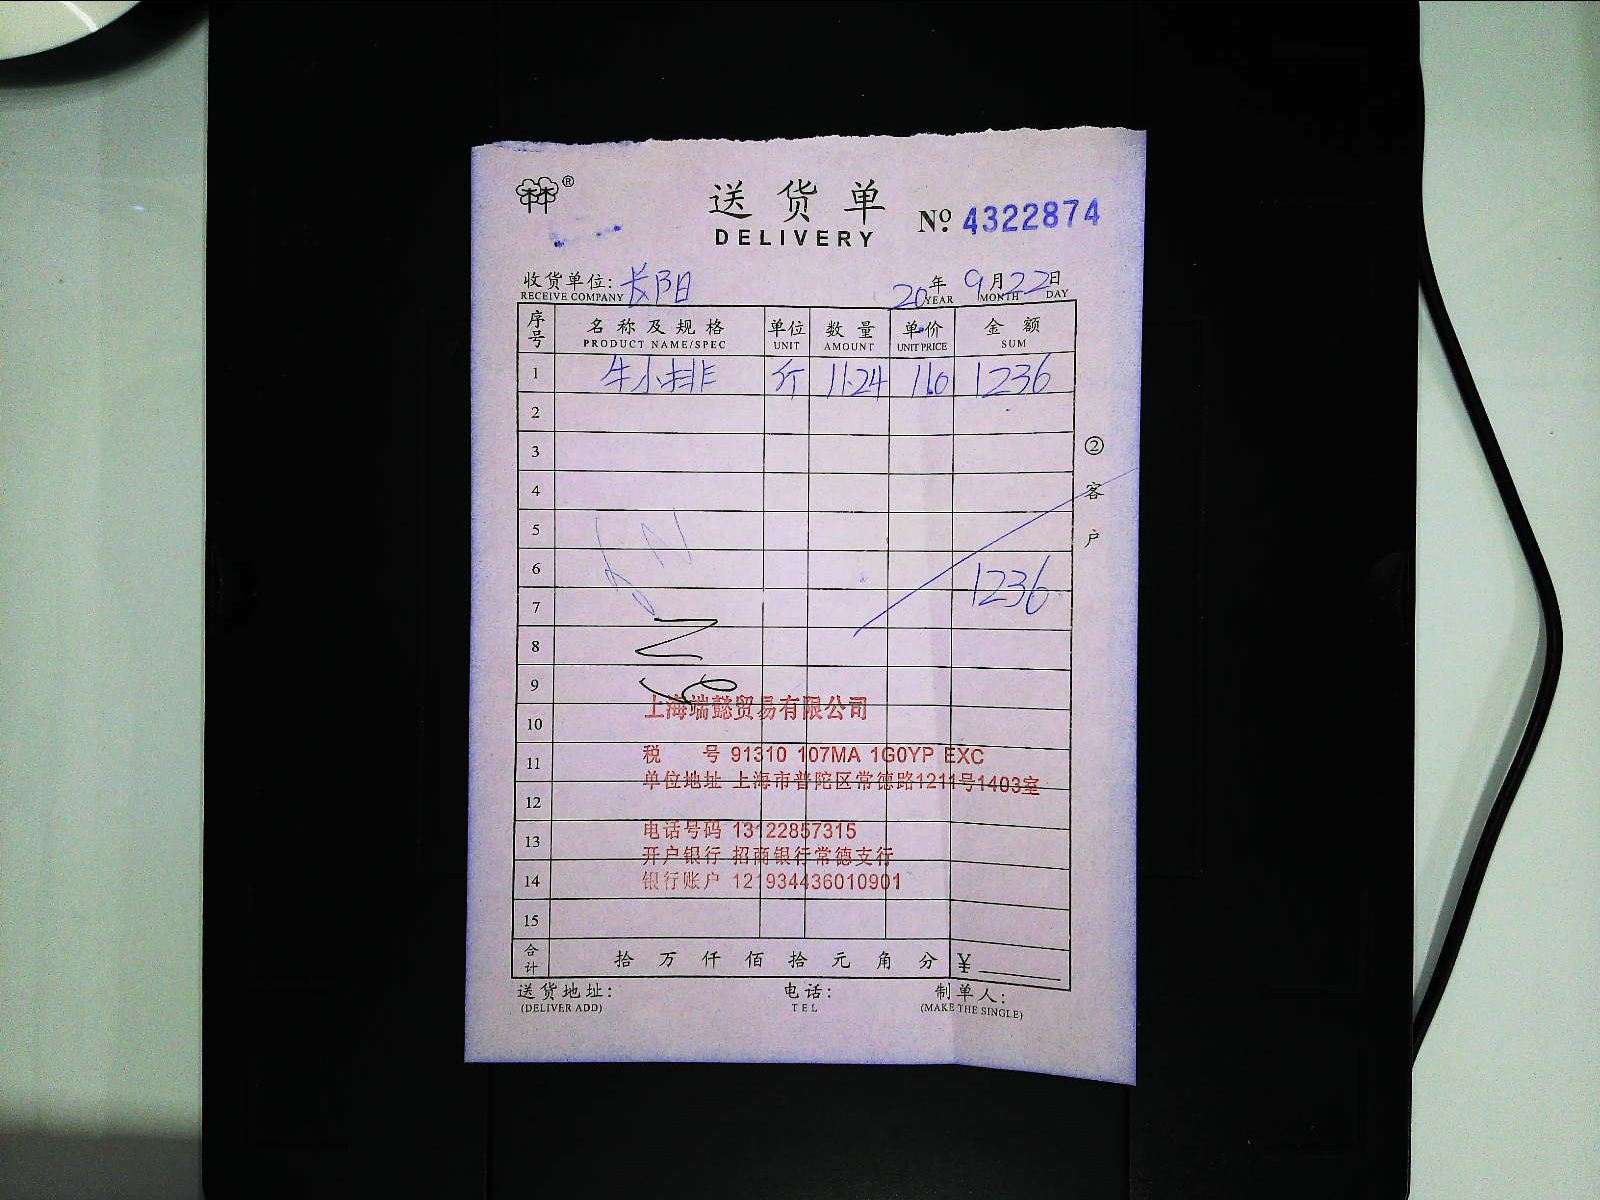 ®
送货单
DELIVERY
No. 4322874
收货单位: 长阳 20年 9月22日
RECEIVE COMPANY YEAR MONTH DAY
序号 名称及规格 单位 数量 单价 金额
PRODUCT NAME/SPEC UNIT AMOUNT UNIT PRICE SUM
1 牛小排 斤 11.24 110 1236
2
3
4
5
6 1236
7
8
9
10
11
12
13
14
15
②客户
上海端懿贸易有限公司
税 号 91310 107MA 1G0YP EXC
单位地址 上海市普陀区常德路1211号1403室
电话号码 13122857315
开户银行 招商银行常德支行
银行账户 121934436010901
合计 拾 万 仟 佰 拾 元 角 分 ¥
送货地址: 电话: 制单人:
(DELIVER ADD) TEL (MAKE THE SINGLE)